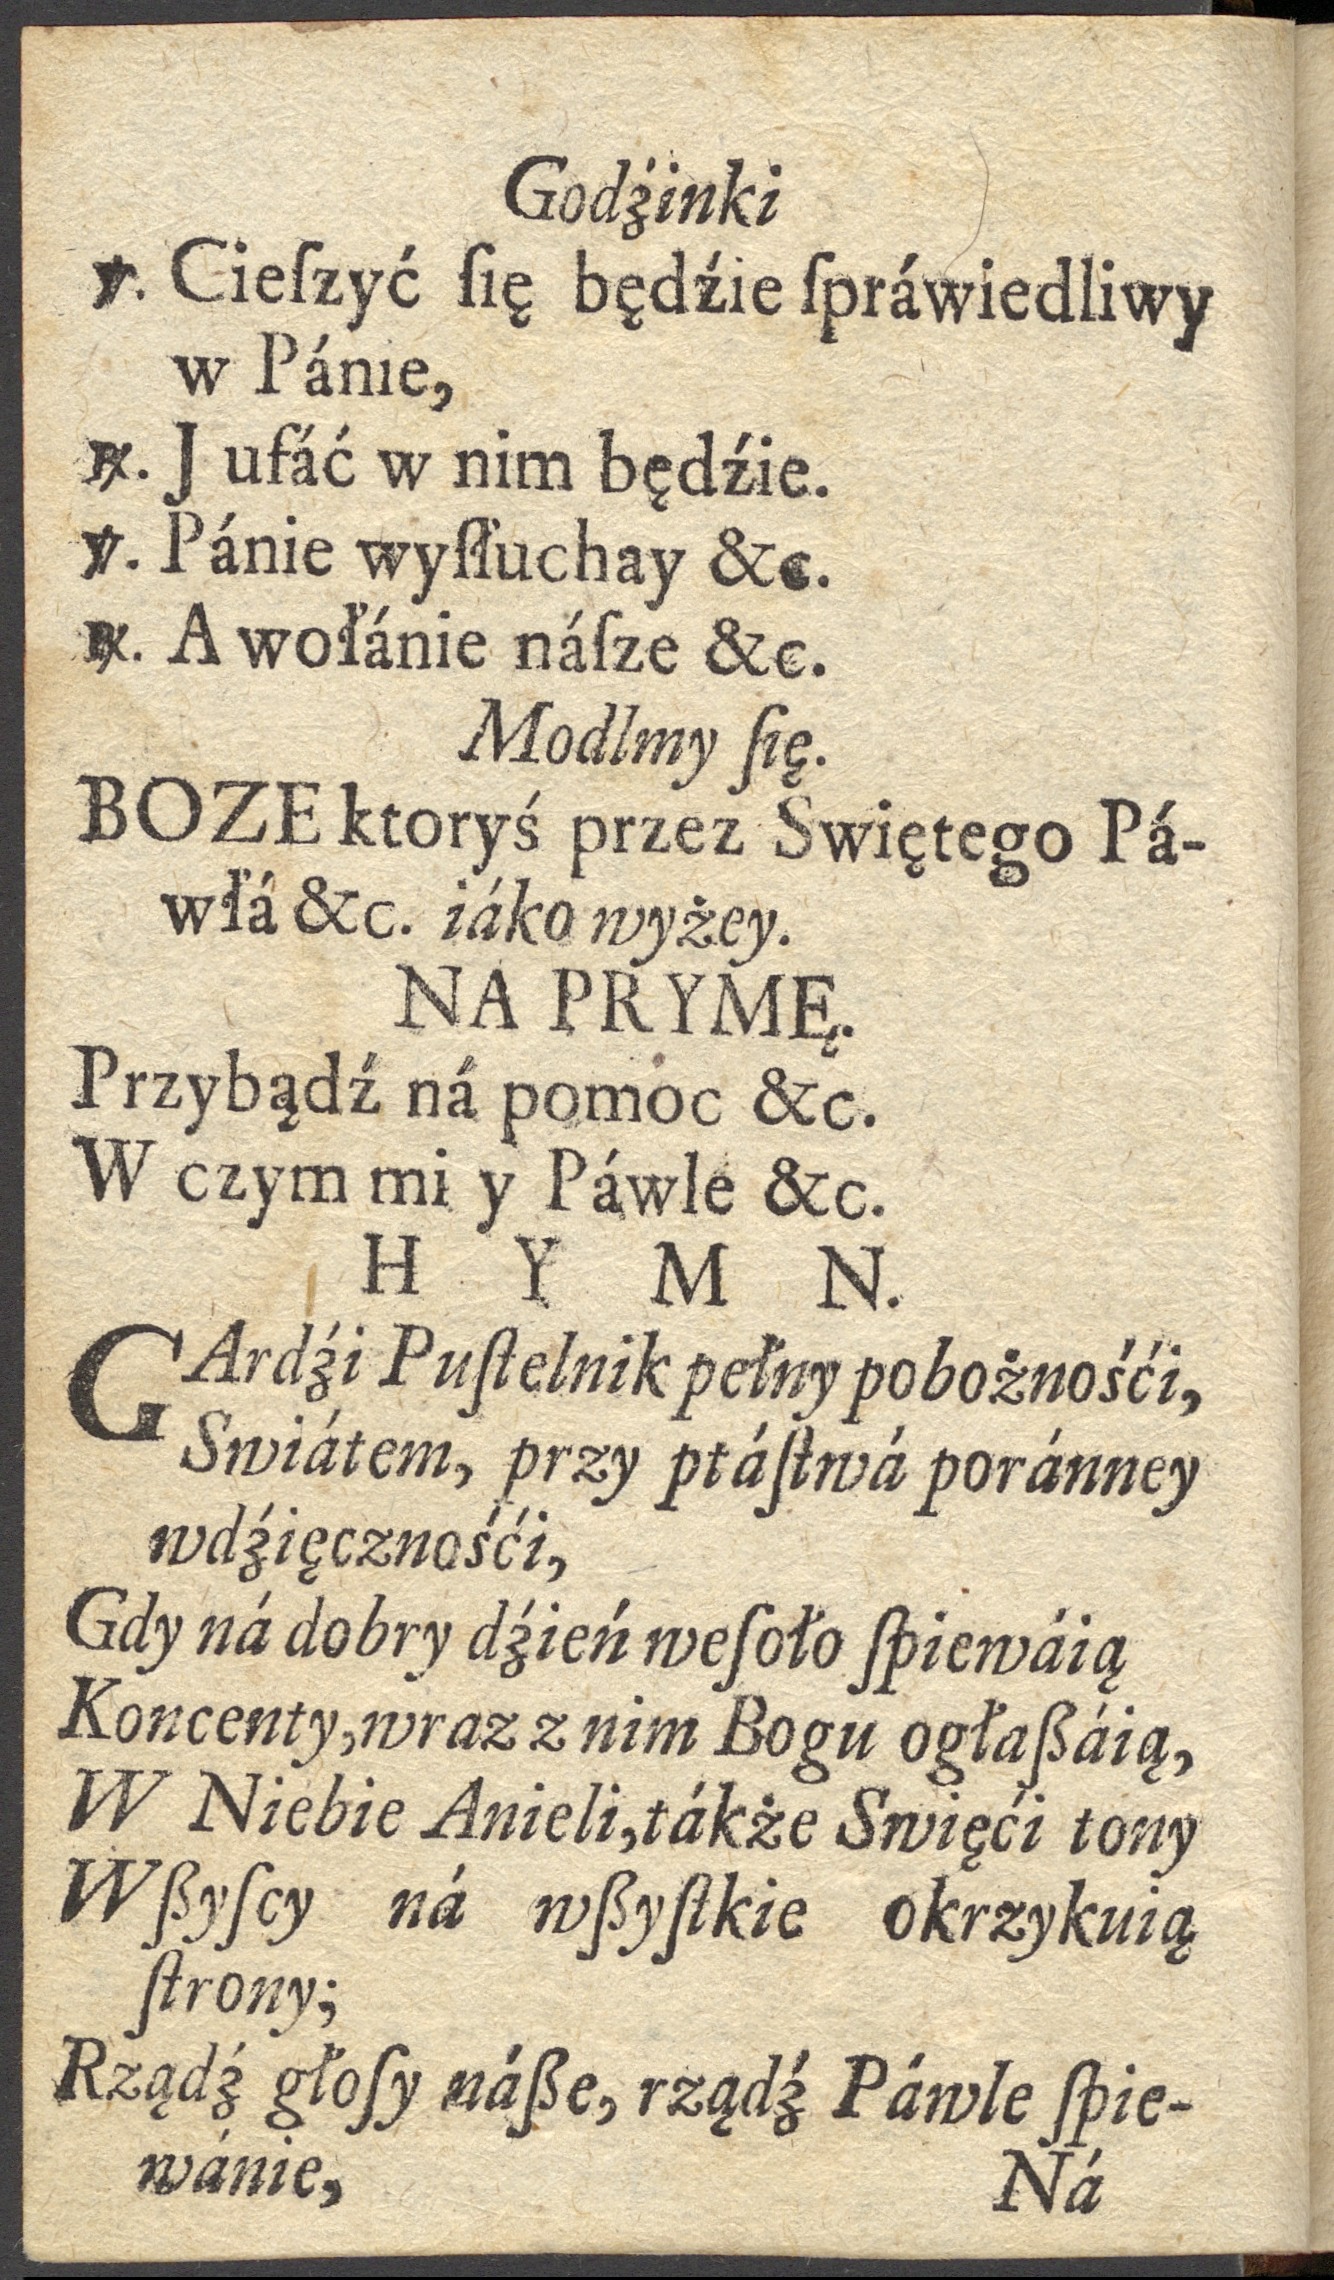 Godźinki
℣. Cieſzyć ſię będźie ſpráwiedliwy
w Pánie,
℟. J ufáć w nim będźie.
℣. Pánie wyſłuchay &c.
℟. A wołánie náſze &c.
Modlmy ſię.
BOZE ktoryś przez Swiętego Pá-
włá &c. iáko wyżey.
NA PRYMĘ.
Przybądź ná pomoc &c.
W czym mi y Páwle &c.
H Y M N.
GArdźi Puſtelnik pełny pobożnośći,
Swiátem, przy ptáſtwá poránney
wdźięcznośći,
Gdy ná dobry dźień weſoło ſpiewáią
Koncenty, wraz z nim Bogu ogłaßáią,
W Niebie Anieli, tákże Swięći tony
Wßyſcy ná wßyſtkie okrzykuią
ſtrony;
Rządź głoſy náße, rządź Páwle ſpie-
wánie,
Ná